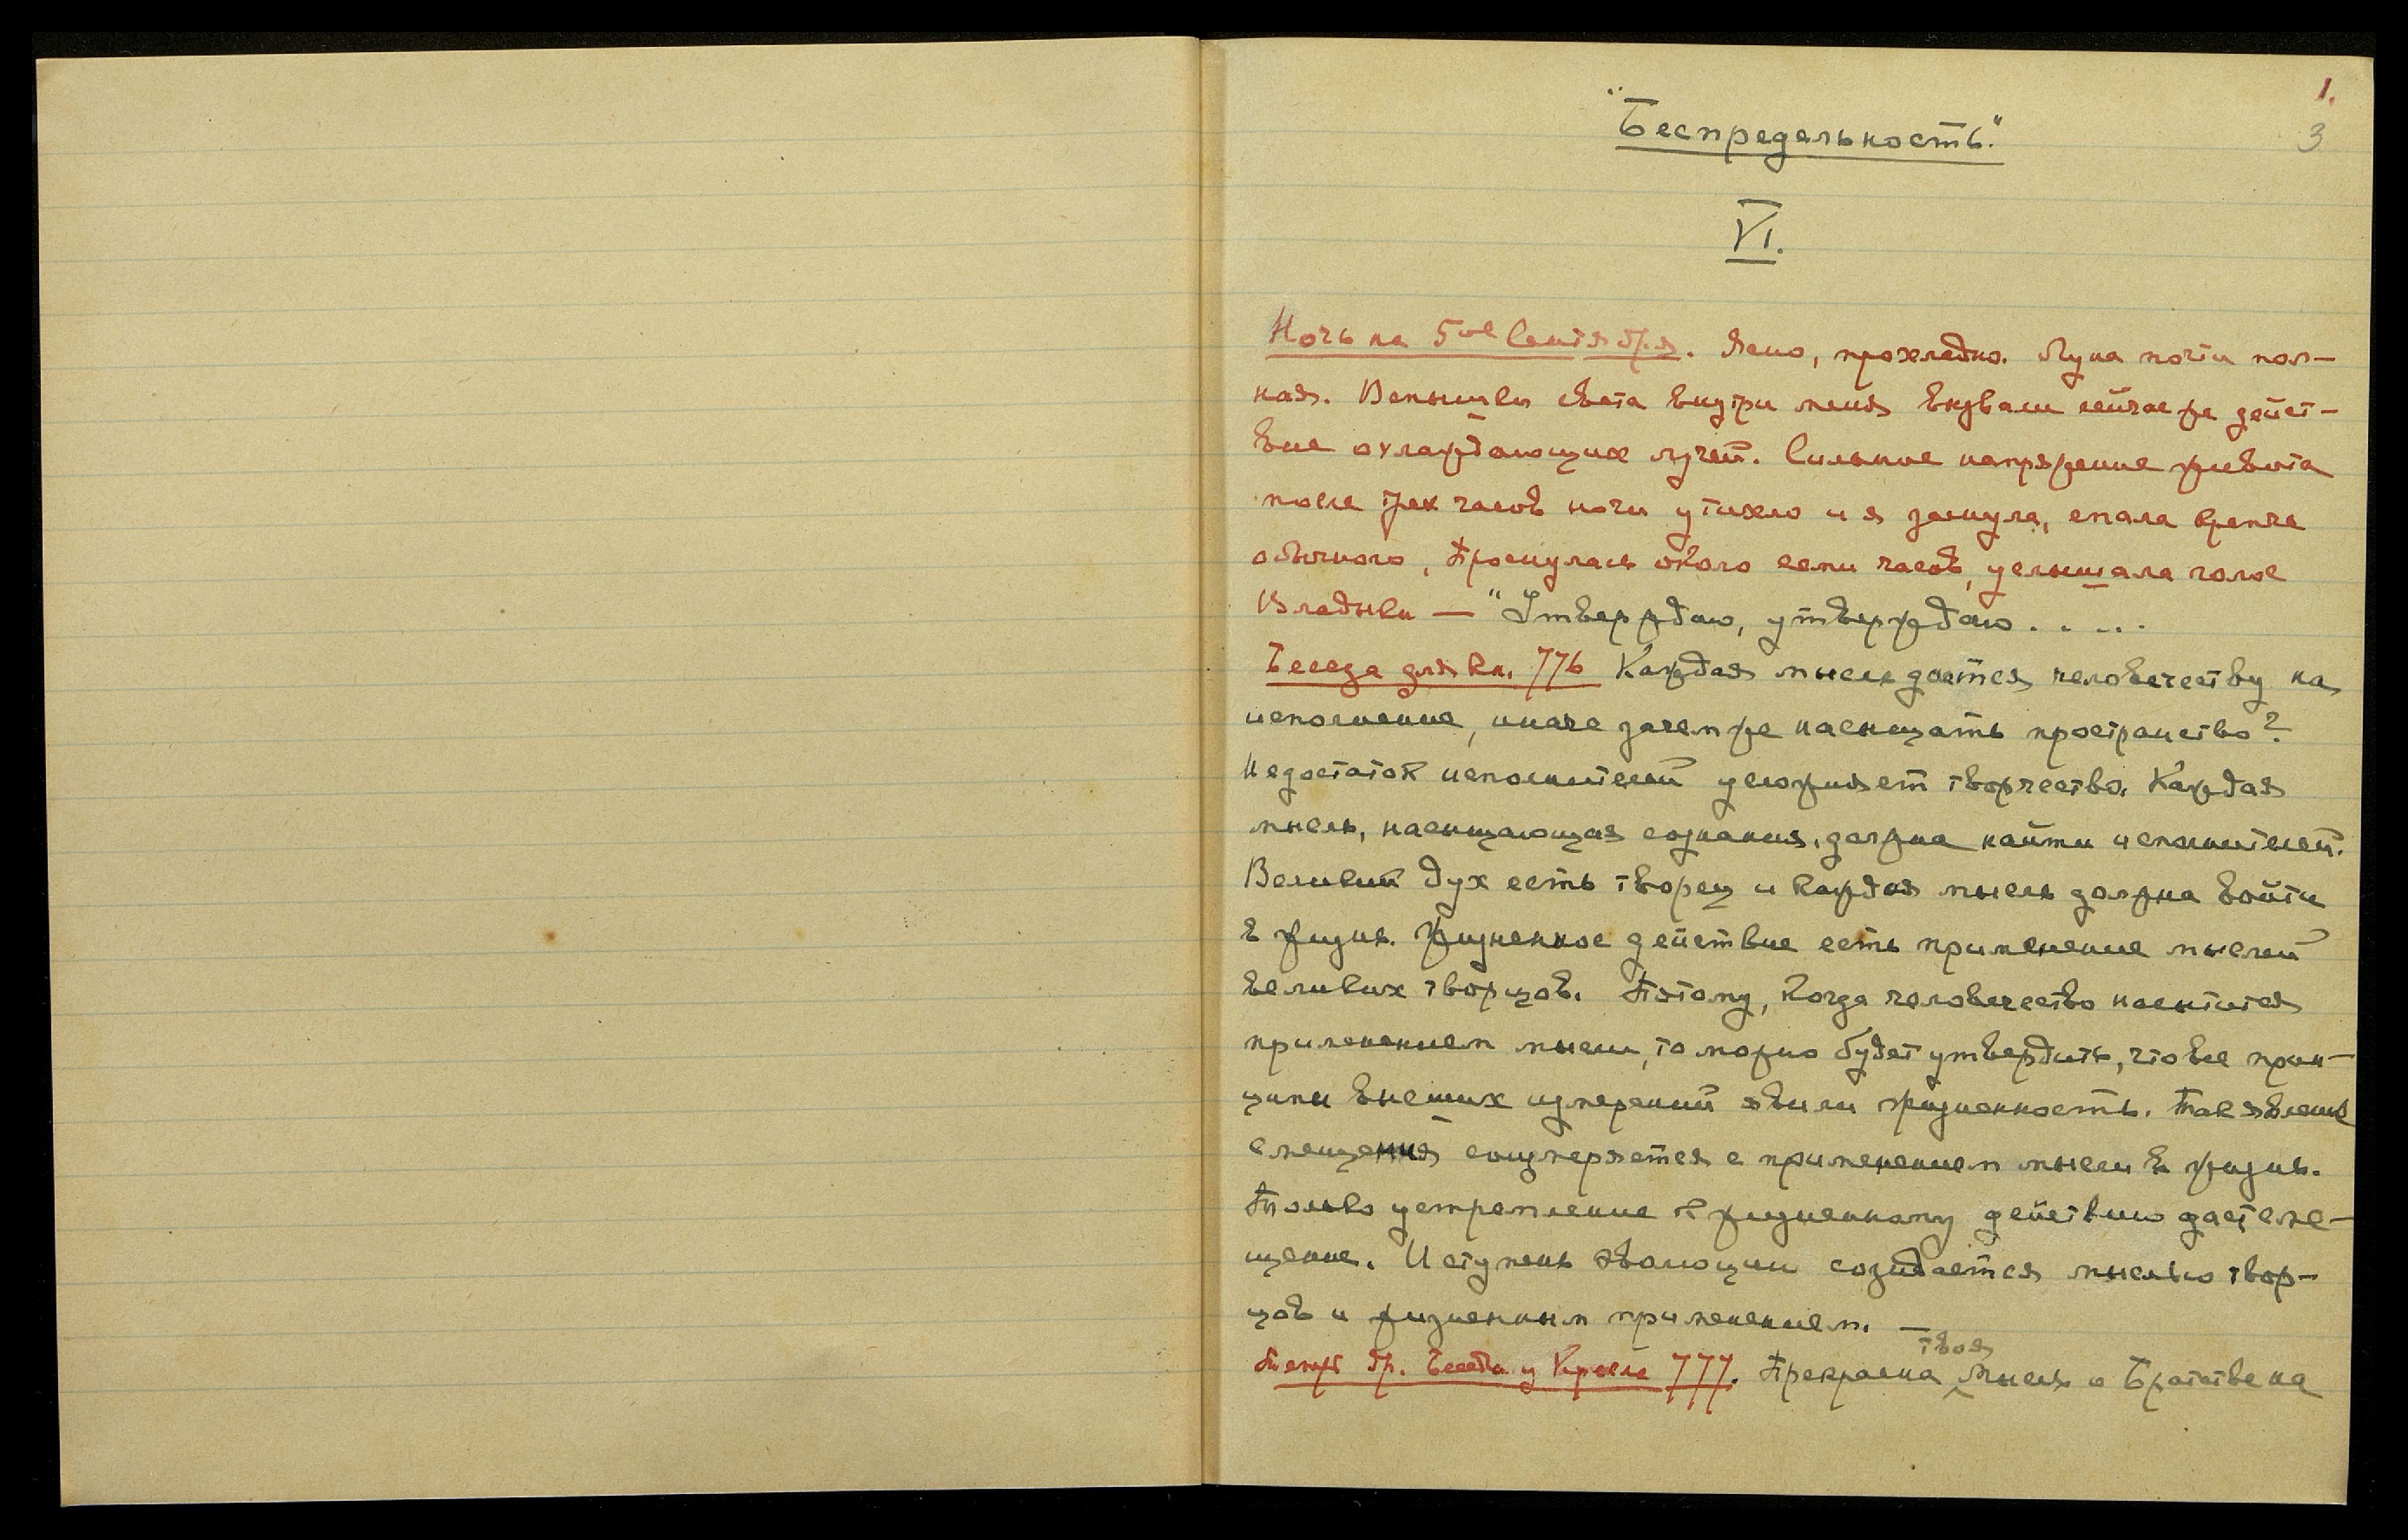 1.
3
"Беспредельность."
VI.
Ночь на 5ое Сентября. Ясно, прохладно. Луна почти пол-
ная. Вспышки света внутри меня вызвали сейчас же дейст-
вие охлаждающих лучей. Сильное напряжение живота
после трех часов ночи утихло и я заснула, спала крепче
обычного, проснулась около семи часов, услышала голос
Владыки — "Утверждаю, утверждаю.....
Беседа для кн. 776 Каждая мысль дается человечеству на
исполнение, иначе зачем же насыщать пространство?
Недостаток исполнителей усложняет творчество. Каждая
мысль, насыщающая сознания, должна найти исполнителей.
Великий дух есть творец и каждая мысль должна войти
в жизнь. Жизненное действие есть применение мыслей
великих творцов. Потому, когда человечество насытится
применением мысли, то можно будет утвердить, что все прин-
ципы высших измерений явили жизненность. Так явление
смещения соизмеряется с применением мысли в жизнь.
Только устремление к жизненному действию даст сме-
щение. И ступень эволюции созидается мыслью твор-
цов и жизненным применением. —
777. Прекрасна твоя мысль о Братстве на